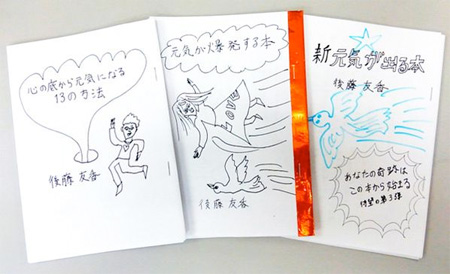 心の底から元気になる
13の方法
後藤友香
元気が爆発する本
後藤友香
新元気が出る本
後藤友香
あなたの奇跡は
この本から始まる
待望の第3弾